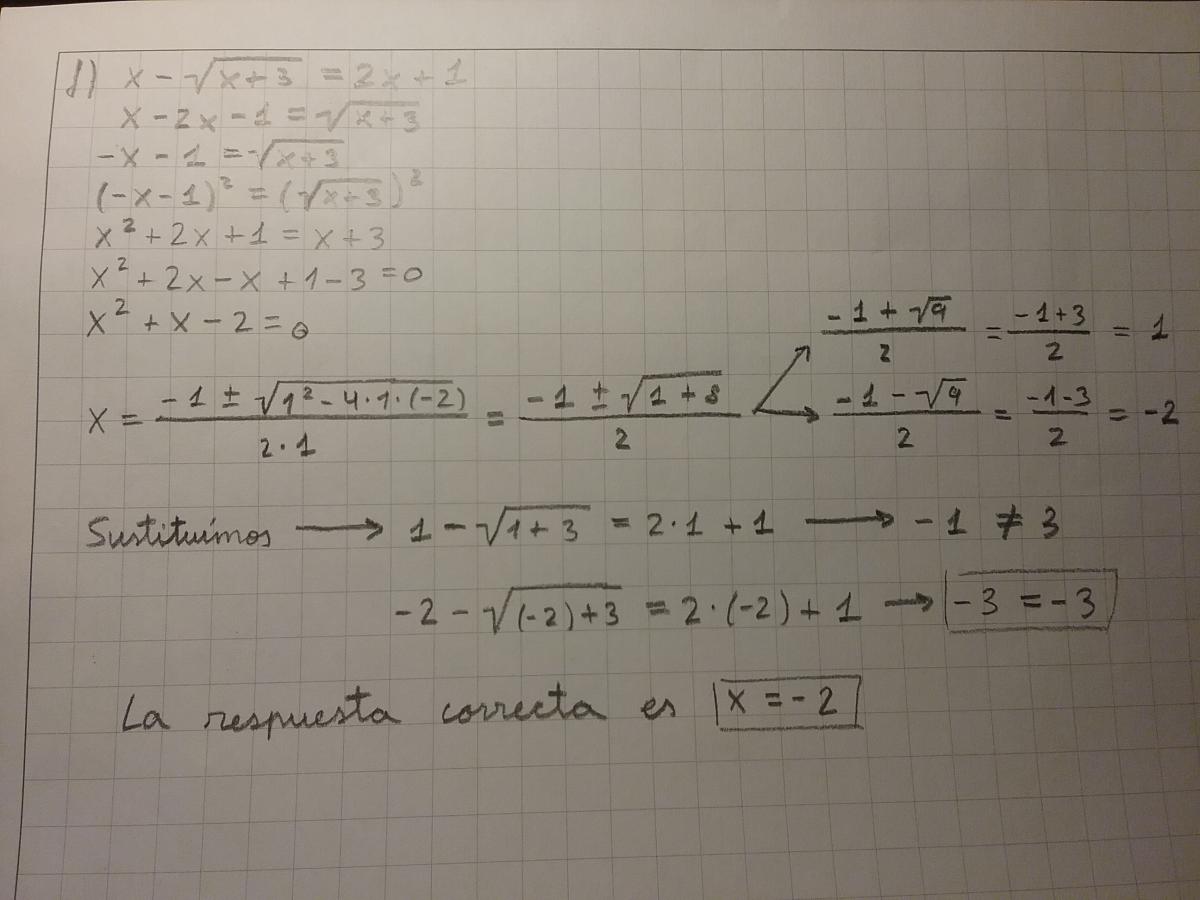 f) x - √(x+3) = 2x + 1
x - 2x - 1 = √(x+3)
-x - 1 = √(x+3)
(-x-1)² = (√(x+3))²
x² + 2x + 1 = x + 3
x² + 2x - x + 1 - 3 = 0
x² + x - 2 = 0
x = (-1 ± √(1² - 4·1·(-2)))/(2·1) = (-1 ± √(1+8))/2
(-1 + √9)/2 = (-1+3)/2 = 1
(-1 - √9)/2 = (-1-3)/2 = -2
Sustituímos → 1 - √(1+3) = 2·1 + 1 → -1 ≠ 3
-2 - √((-2)+3) = 2·(-2) + 1 → -3 = -3
La respuesta correcta es x = -2